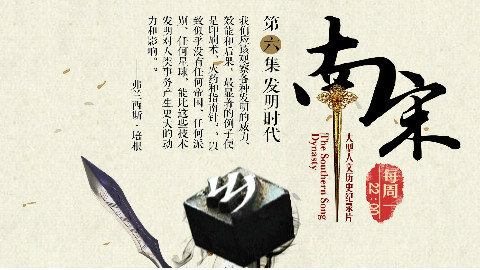 南宋
大型人文历史纪录片
The Southern Song
Dynasty
每周一
22:00
第六集 发明时代
我们应该观察各种发明的威力、
效能和后果，最显著的例子便
是印刷术、火药和指南针，……以
致似乎没有任何帝国、任何派
别、任何星球，能比这些技术
发明对人类事务产生更大的动
力和影响。
——弗兰西斯·培根